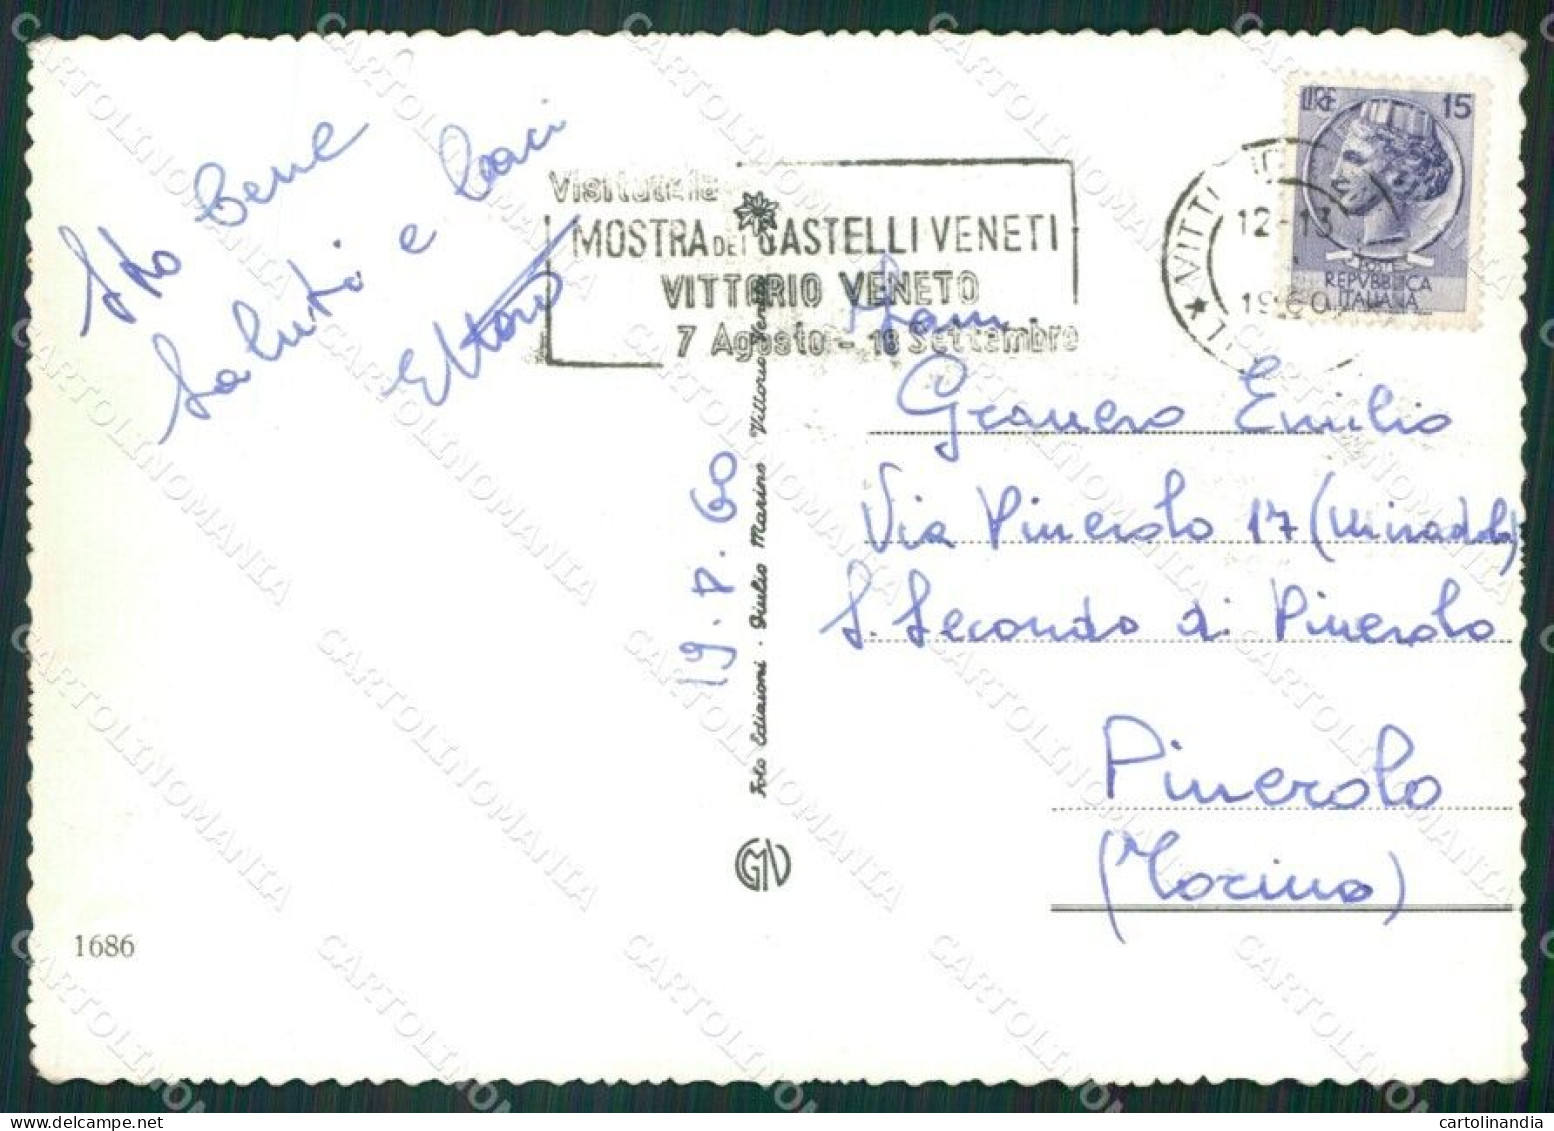 Sto bene
Saluti e baci
Ettore
Visitate la
MOSTRA DEI CASTELLI VENETI
VITTORIO VENETO
7 Agosto - 18 Settembre
LIRE 15
POSTE
REPVBBLICA
ITALIANA
12-13
1960
Granero Emilio
Via Pinerolo 17 (Miradolo)
S. Secondo di Pinerolo
Pinerolo
(Torino)
19.8.60
Foto Edizioni · Giulio Marino Vittorio Veneto
GMV
1686
CARTOLINOMANIA
cartolinandia